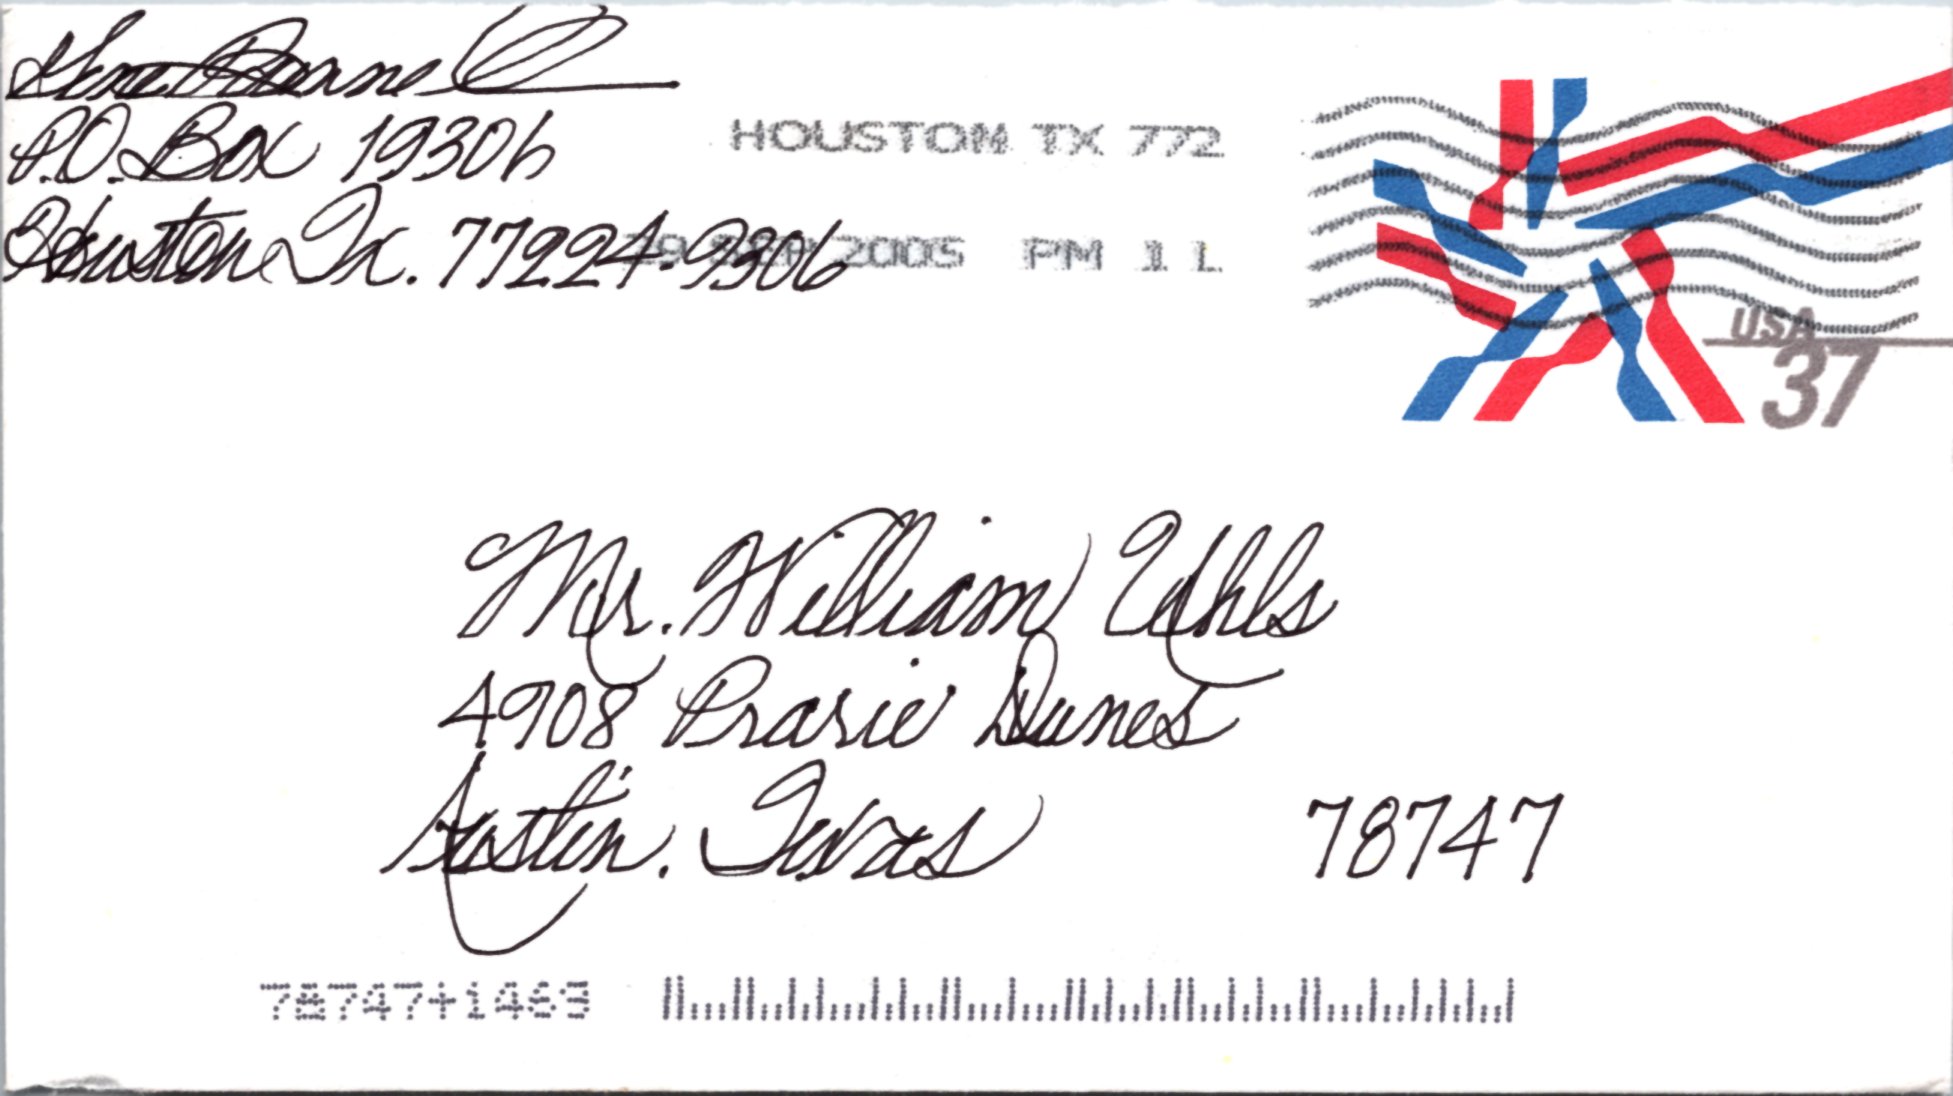 Gene Barne
P.O. Box 19306
Houston Tx. 77224-9306
HOUSTON TX 772
29 SEP 2005 PM 1 L
USA
37
Mr. William Uhls
4908 Prarie Dunes
Austin. Texas 78747
78747+1463